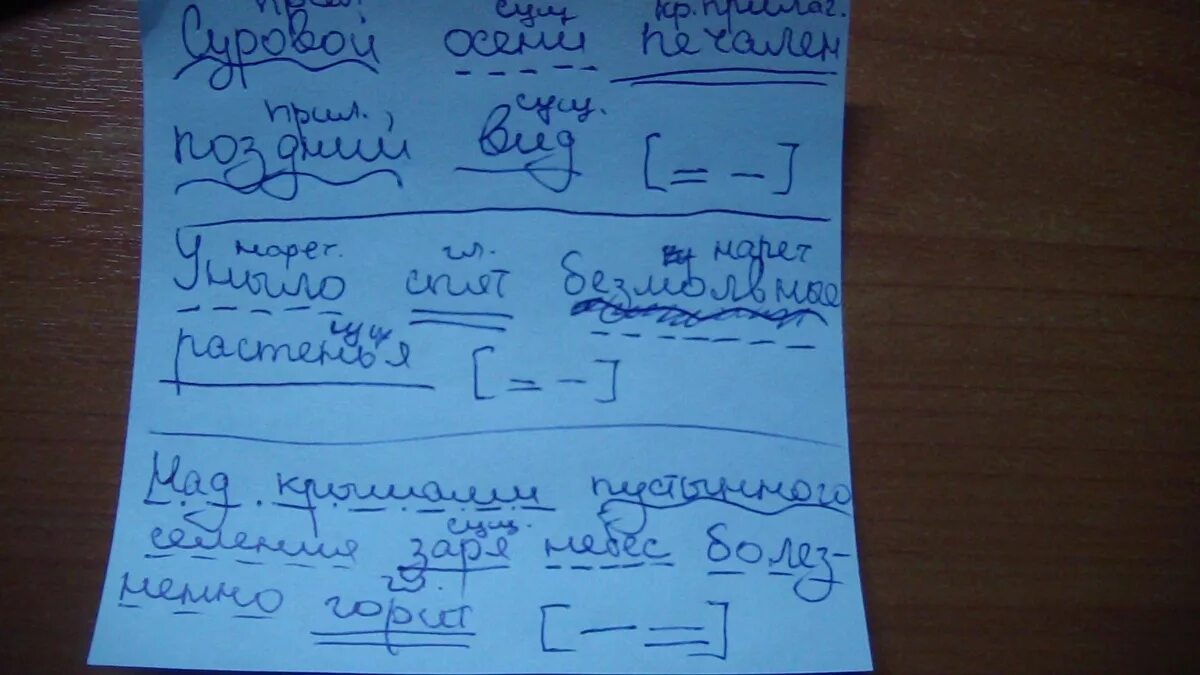 прил. сущ. кр. прилаг.
Суровой осени печален
прил., сущ.
поздний вид [= –]
нареч. гл. нареч
Уныло спят безмолвные
сущ
растенья [= –]
Над крышами пустынного
сущ.
селения заря небес болез-
гл.
ненно горит [– =]